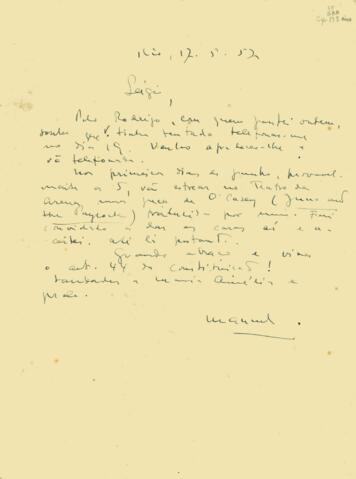 Rio, 17. 5. 57
Pelo Rodrigo, com quem jantei ontem,
soube que tinha tentado telefonar-me
no dia 19. Venho agradecer-lhe a
telefonada.
Nos primeiros dias de junho, provavel-
mente a 5, vão estrear no Teatro de
Arena, uma peça de O'Casey (Juno and
the Paycock) traduzida por mim. Fui
convidado a dar as caras aí e a-
ceitei. Até lá portanto.
Grande abraço e viva
o art. 44 da Constituição!
Saudades a Maria Amélia e
prole.
Manuel